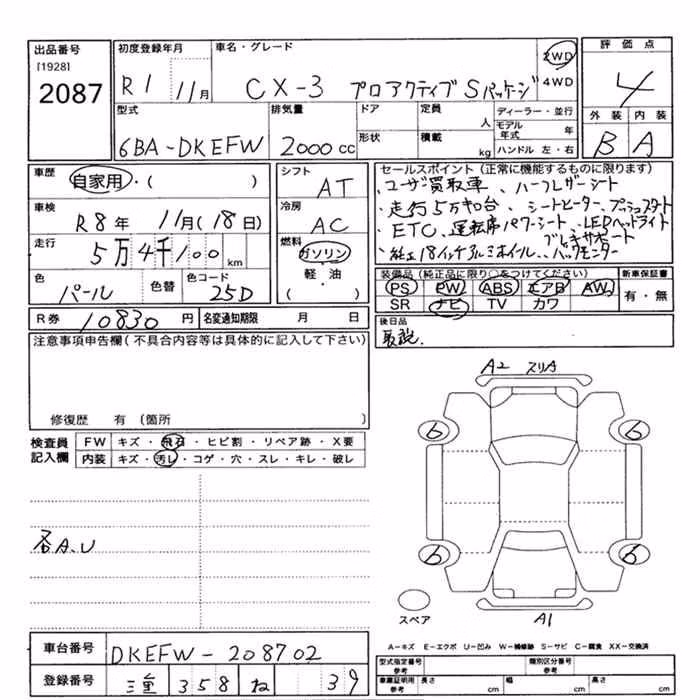 出品番号
[1928]
2087
初度登録年月
R1 11月
車名・グレード
CX-3 プロアクティブ Sパッケージ
2WD
4WD
評価点
4
外装 内装
B A
型式
6BA-DKEFW
排気量
2000 cc
ドア
形状
定員
人
積載
kg
ディーラー・並行
モデル年式 年
ハンドル 左・右
車歴
自家用・( )
車検
R8年 11月(18日)
走行
5万4千100 km
色
パール
色替
色コード
25D
シフト
AT
冷房
AC
燃料
ガソリン
軽・油
( )
セールスポイント(正常に機能するものに限ります)
・ユーザー買取車 、ハーフレザーシート
・走行5万キロ台 、シートヒーター、プッシュスタート
・ETC、運転席パワーシート、LEDヘッドライト
ブレーキサポート
・純正18インチアルミホイール、バックモニター
装備品(純正品に限り○をつけてください)
PS PW ABS エアB AW
SR ナビ TV カワ
新車保証書
有・無
後日品
取説.
R券 10830 円
名変通知期限 月 日
注意事項申告欄(不具合内容等は具体的に記入して下さい)
修復歴 有(箇所 )
検査員
記入欄
FW キズ・飛石・ヒビ割・リペア跡・X要
内装 キズ・汚レ・コゲ・穴・スレ・キレ・破レ
各A.U
A2 スリA
6 6
6 6
スペア
A1
A=キズ E=エクボ U=凹み W=補修跡 S=サビ C=腐食 XX=交換済
車台番号 DKEFW-208702
登録番号 三重 358 ね 39
型式指定番号
参考
類別区分番号
参考
車庫証明用
参考
長さ cm
幅 cm
高さ cm